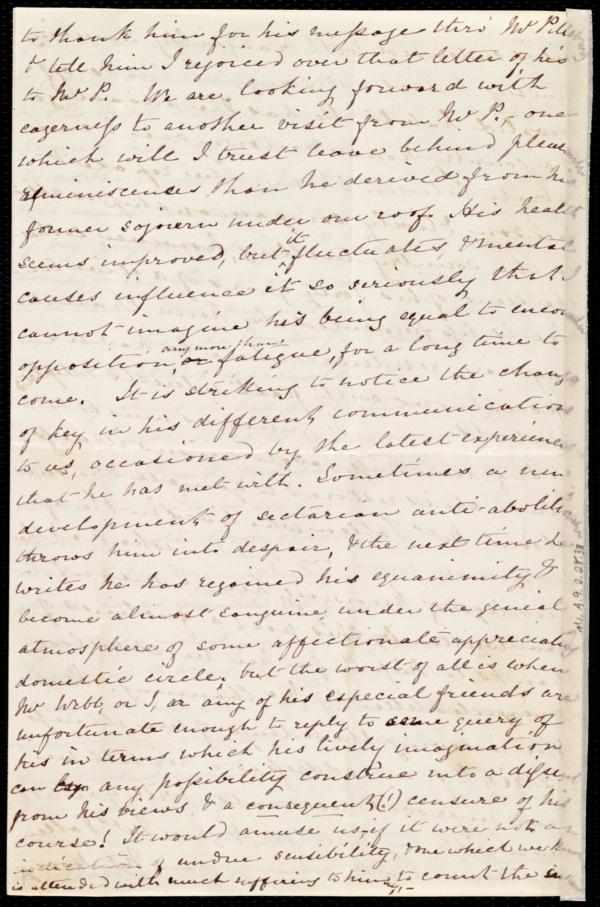 to thank him for his message thro' Mr Pill
& tell him I rejoiced over that letter of his
to Mr P. We are looking forward with
eagerness to another visit from Mr P., - one
which will I trust leave behind pleas
reminiscences than he derived from his
former sojourn under our roof. His heal
seems improved, but it fluctuates, & mental
causes influence it so seriously that I
cannot imagine his being equal to encou
opposition, or any more than fatigue, for a long time to
come. It is striking to notice the chang
of key in his different communications
to us, occasioned by the latest experience
that he has met with. Sometimes a new
development of sectarian anti-aboliti
throws him into despair, & the next time he
writes he has regained his equanimity &
become almost sanguine, under the genial
atmosphere of some affectionate appreciating
domestic circle: but the worst of all is when
Mr Webb, or I, or any of his especial friends are
unfortunate enough to reply to some query of
his in terms which his lively imagination
can by any possibility construe into a diss
from his views & a consequent (!) censure of his
course! It would amuse us, if it were not an
indication of undue sensibility, & one which we know
is attended with much suffering to him, - to count the
Ms. A. 9. 2. 28. 33